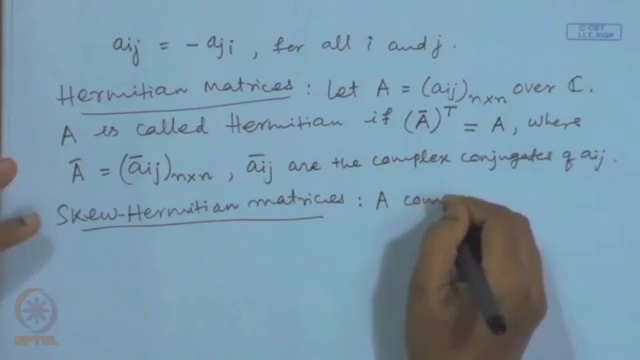 © CET
I.I.T. KGP
aij = - aji , for all i and j.
Hermitian Matrices : Let A = (aij)n×n over ℂ.
A is called Hermitian if (Ā)ᵀ = A, where
Ā = (āij)n×n , āij are the complex conjugates of aij.
Skew-Hermitian matrices : A com
NPTEL